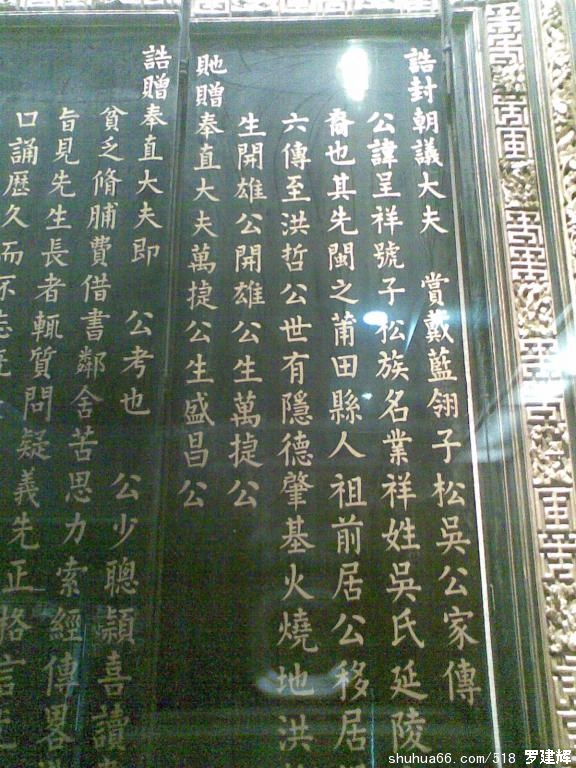 誥封朝議大夫 賞戴藍翎子松吳公家傳
公諱呈祥號子松族名業祥姓吳氏延陵
裔也其先閩之莆田縣人祖前居公移居
六傳至洪哲公世有隱德肇基火燒地洪
生開雄公開雄公生萬捷公
貤贈奉直大夫萬捷公生盛昌公
誥贈奉直大夫即 公考也 公少聰穎喜讀
貧乏脩脯費借書鄰舍苦思力索經傳畧
旨見先生長者輒質問疑義先正格言
口誦歷久而
shuhua66.com/518 罗建辉